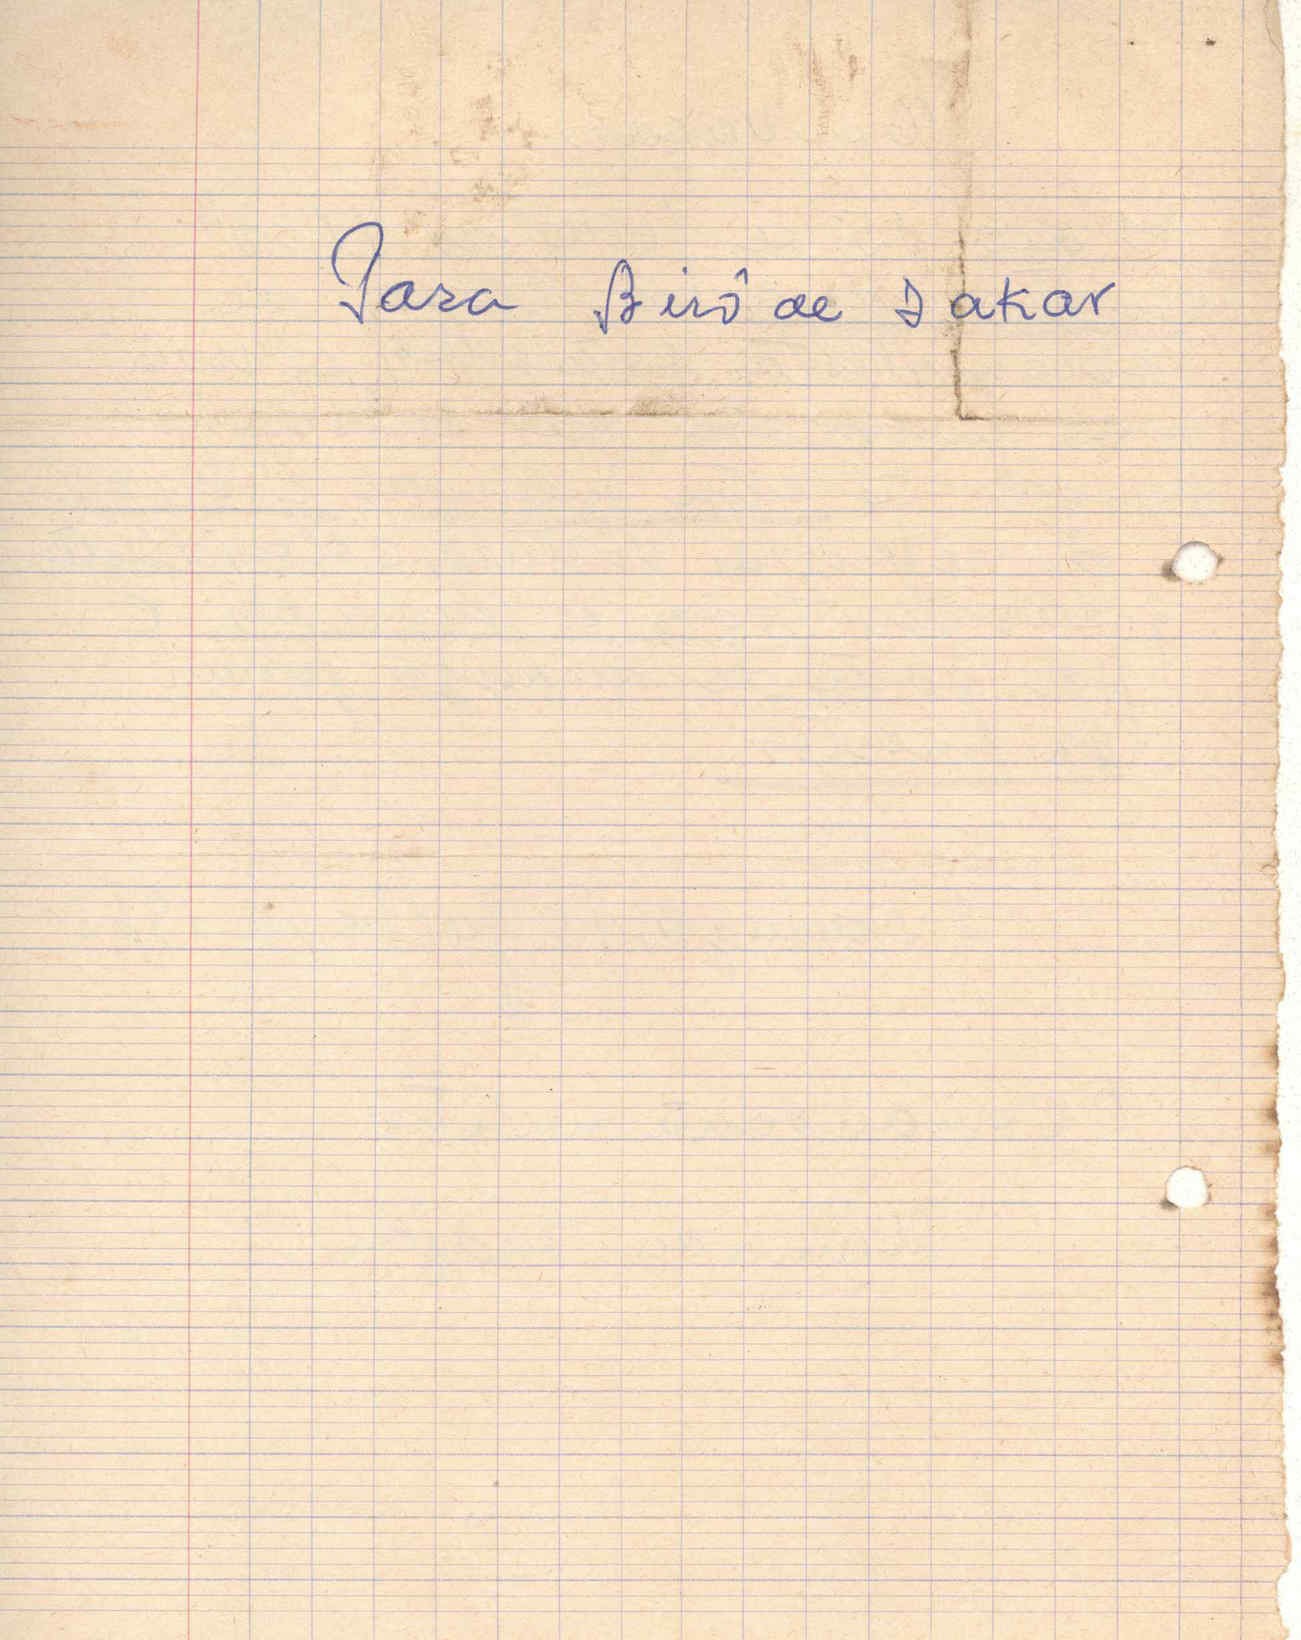 Para Birô de Dakar